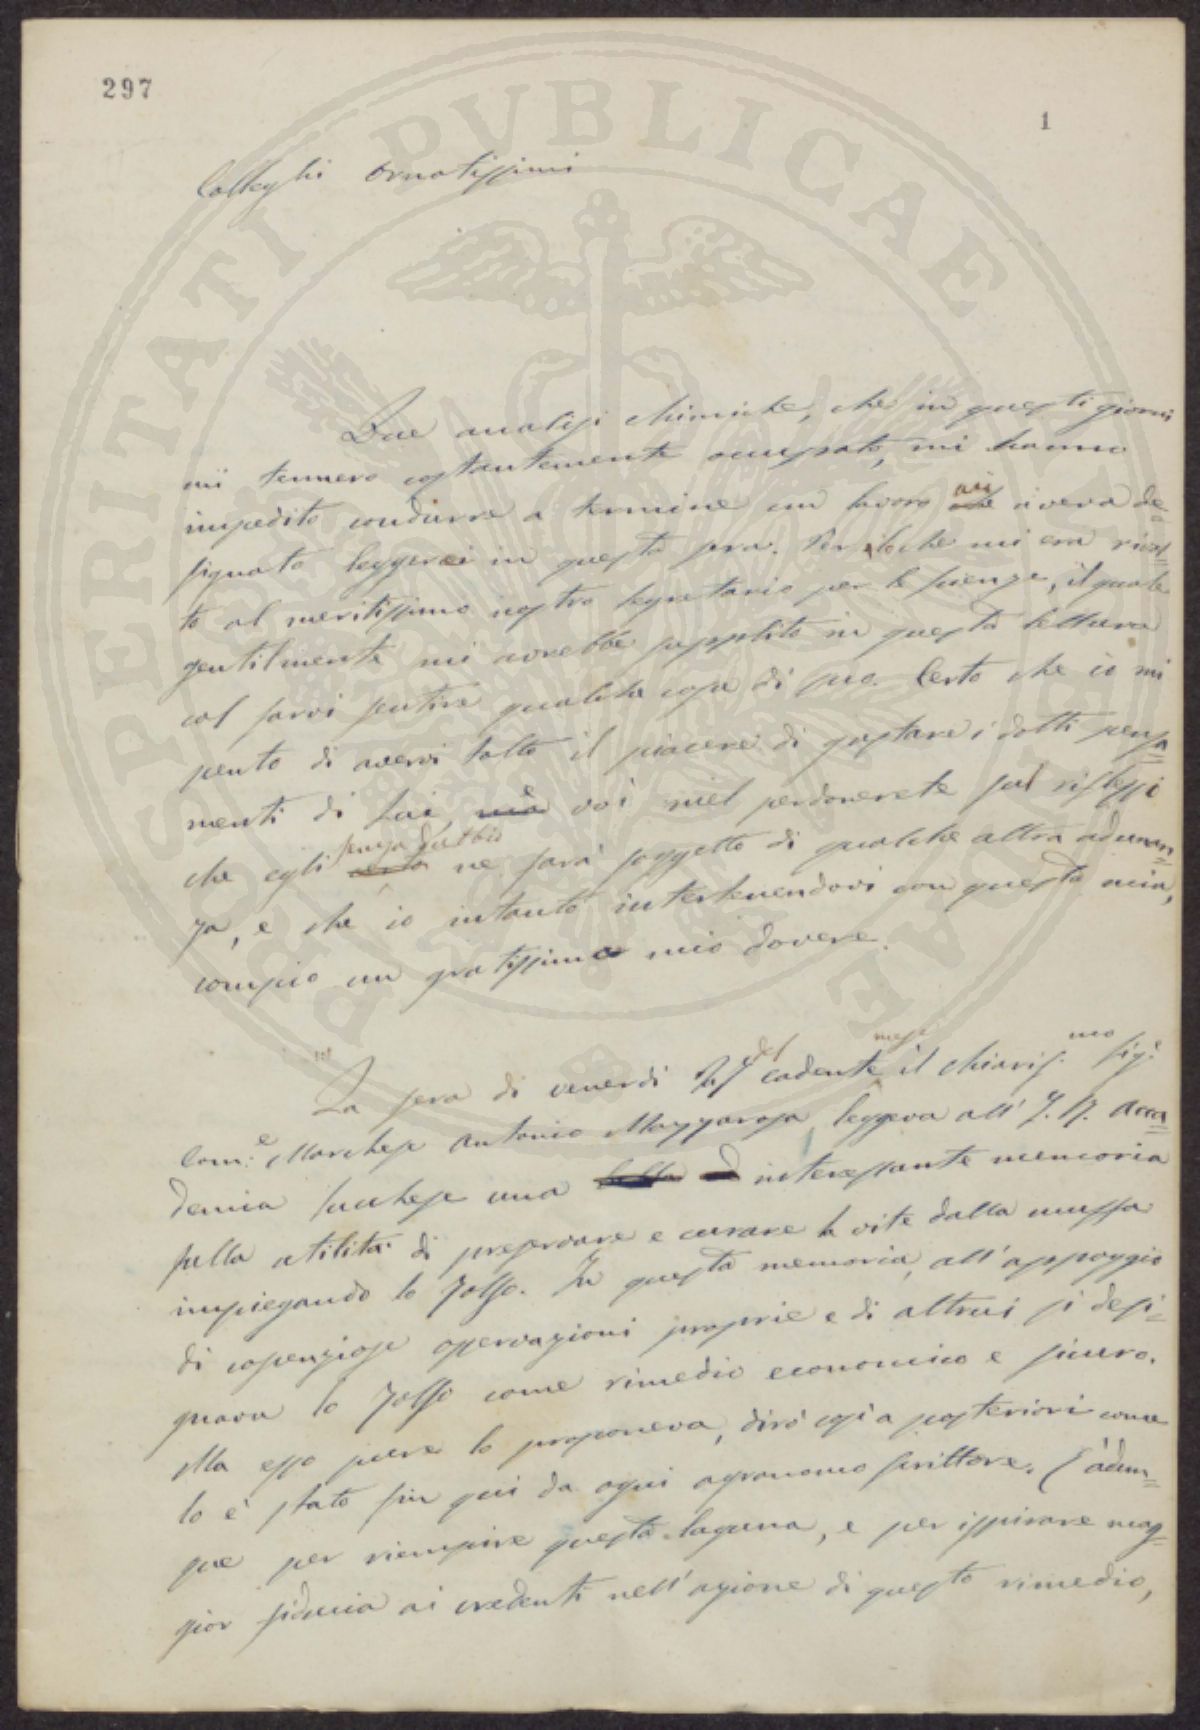 297
1
PROSPERITATI PVBLICAE
Colleghi ornatissimi
Due analisi chimiche, che in questi giorni
mi tennero costantemente occupato, mi hanno
impedito condurre a termine un lavoro che aveva de-
signato leggervi in questa sera. Per loche mi era rivol-
to al meritissimo nostro segretario per le scienze, il quale
gentilmente mi avrebbe supplito in questa lettura
col farvi sentire qualche cosa di suo. Certo che io mi
pento di avervi tolto il piacere di gustare i dotti pensa=
menti di Lui, ma voi mel perdonerete sul riflesso
che egli certo senza dubbio ne farà soggetto di qualche altra adunan=
za, e che io intanto intertenendovi con questa mia,
compio un gratissimo mio dovere.
La sera di venerdì 27 del cadente mese il chiariss.mo sig.
Com.e Marchese Antonio Mazzarosa leggeva all' I. R. Acca=
demia lucchese una bella interessante memoria
sulla utilità di preservare e curare la vite dalla muffa
impiegando lo zolfo. In questa memoria, all'appoggio
di coscenziose osservazioni proprie e di altrui si desi-
gnava lo zolfo come rimedio economico e sicuro.
Ma esso pure lo proponeva, dirò così a posteriori come
lo è stato fin qui da ogni agronomo scrittore. È adun=
que per riempire questa laguna, e per ispirare mag=
gior fiducia ai credenti nell'azione di questo rimedio,